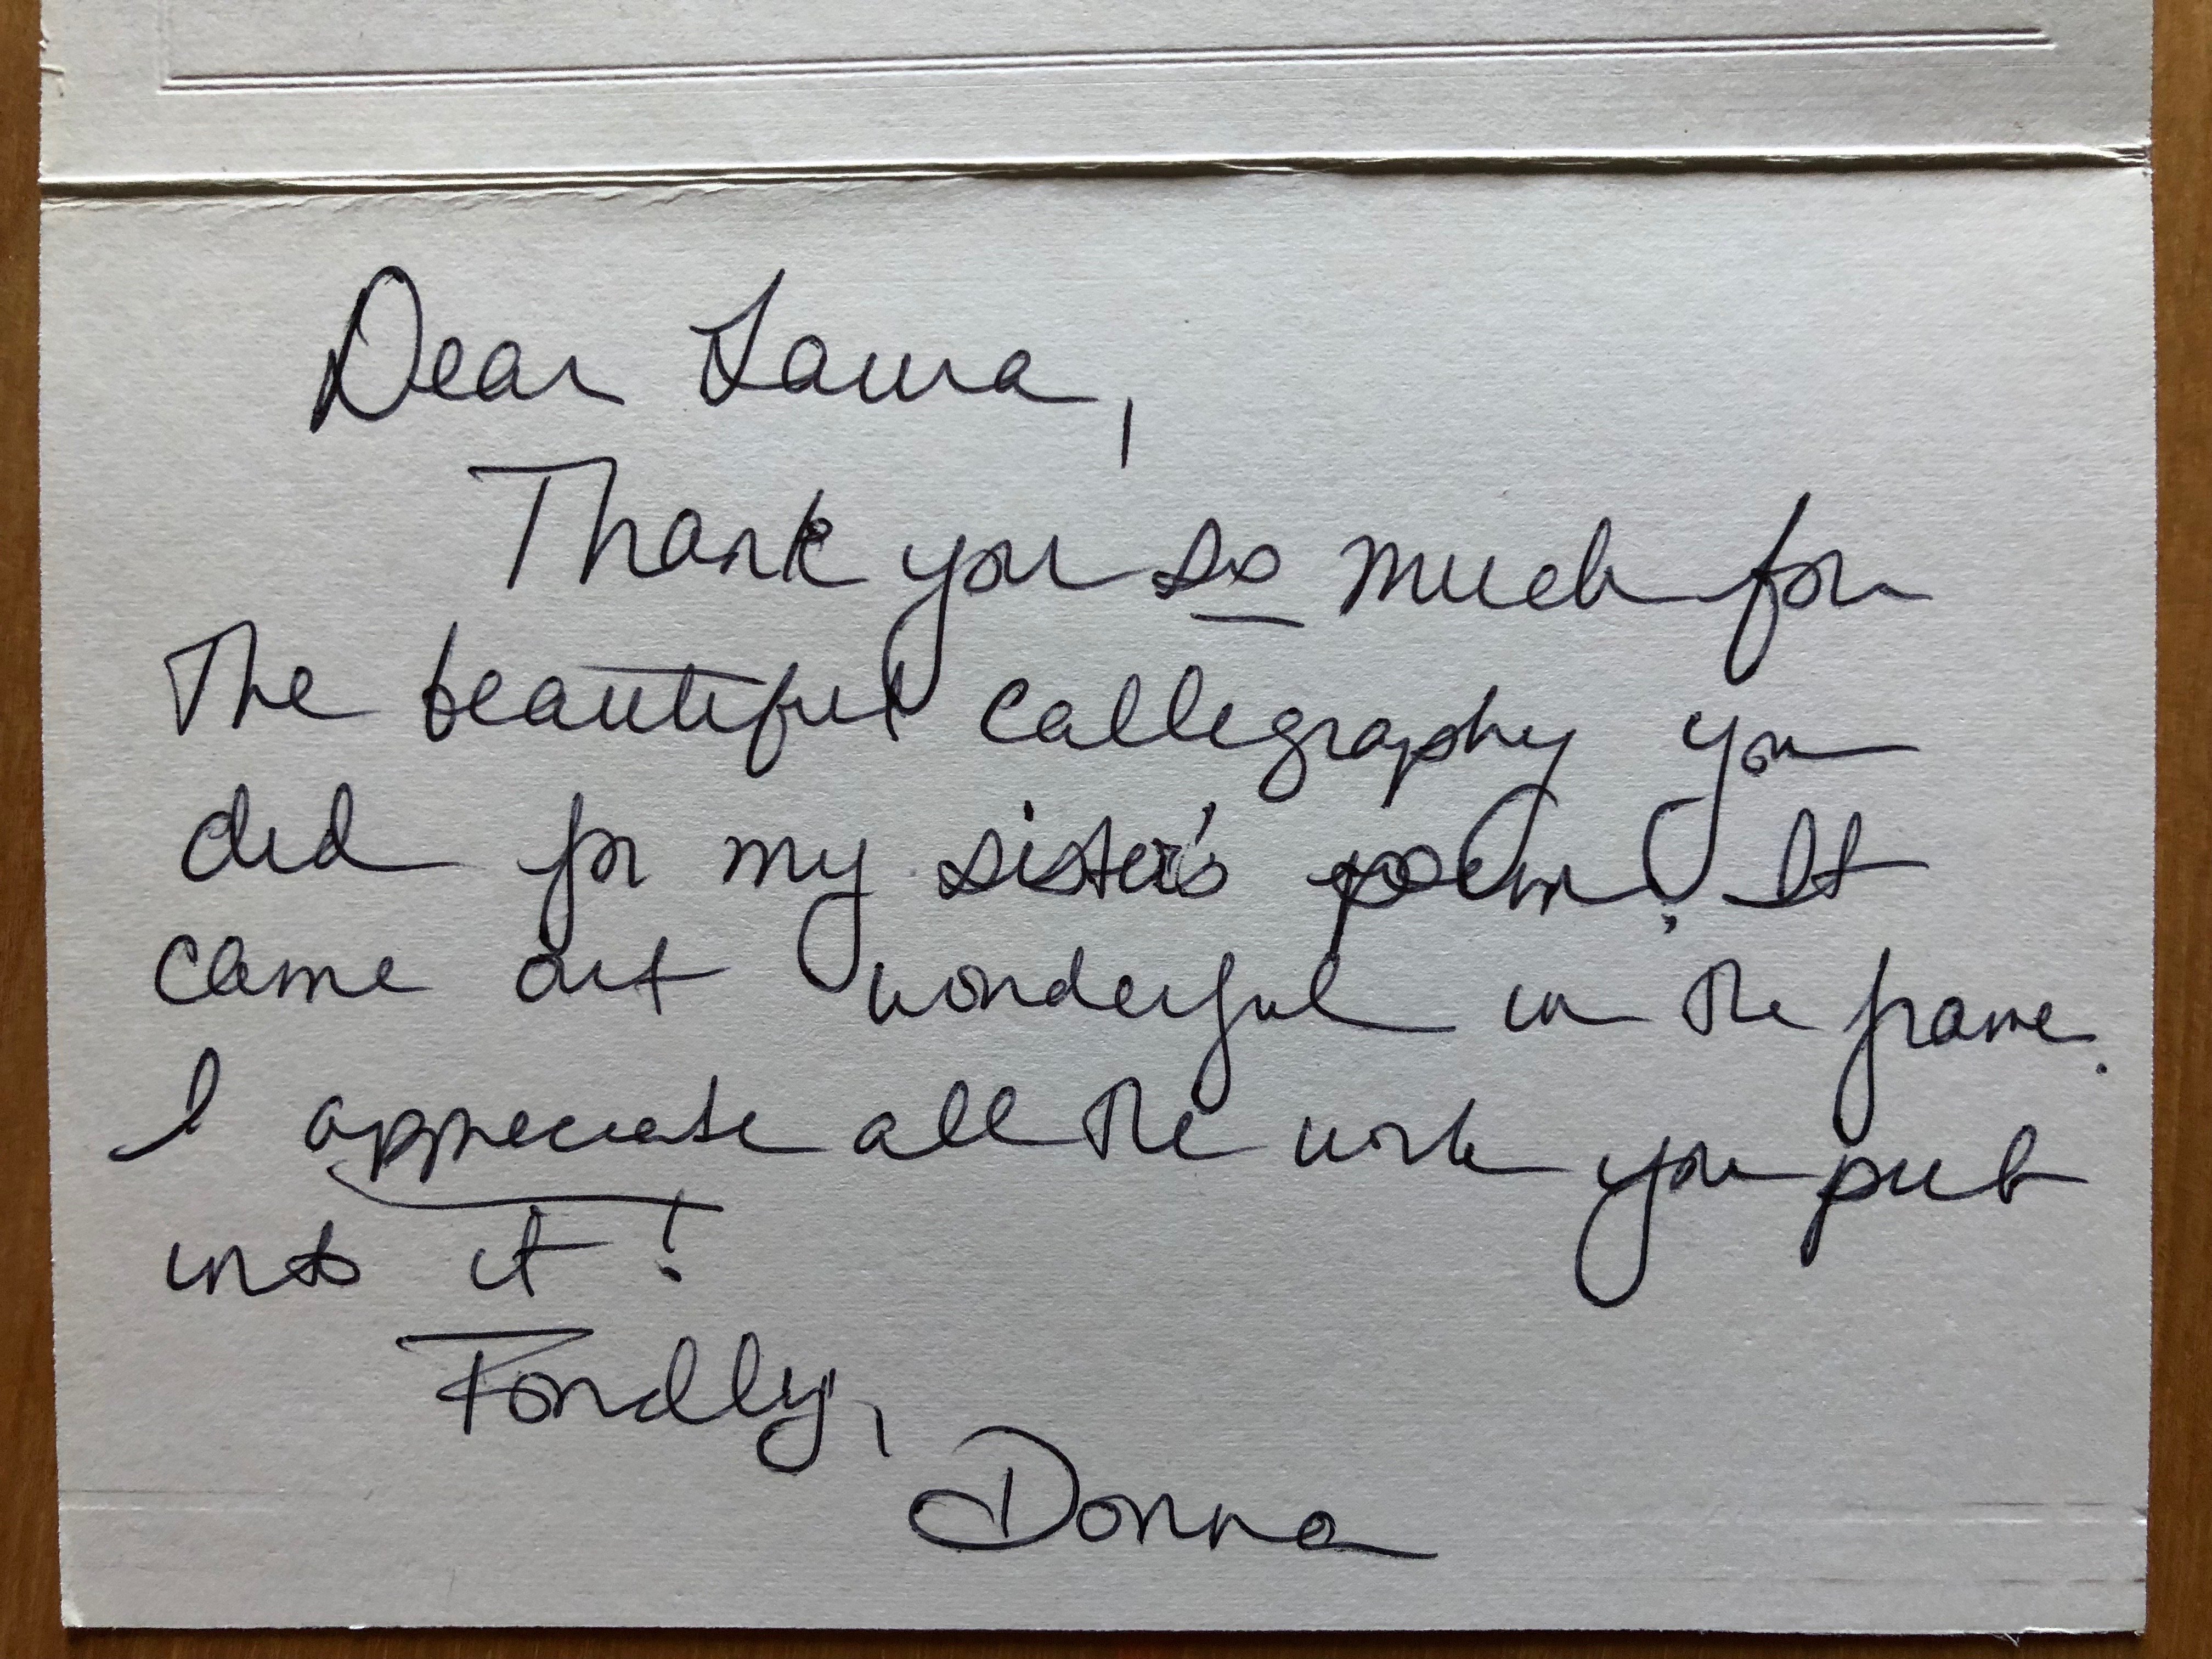 Dear Laura,
Thank you so much for
The beautiful calligraphy you
did for my sister's poem. It
came out wonderful in the frame.
I appreciate all the work you put
into it!
Fondly,
Donna